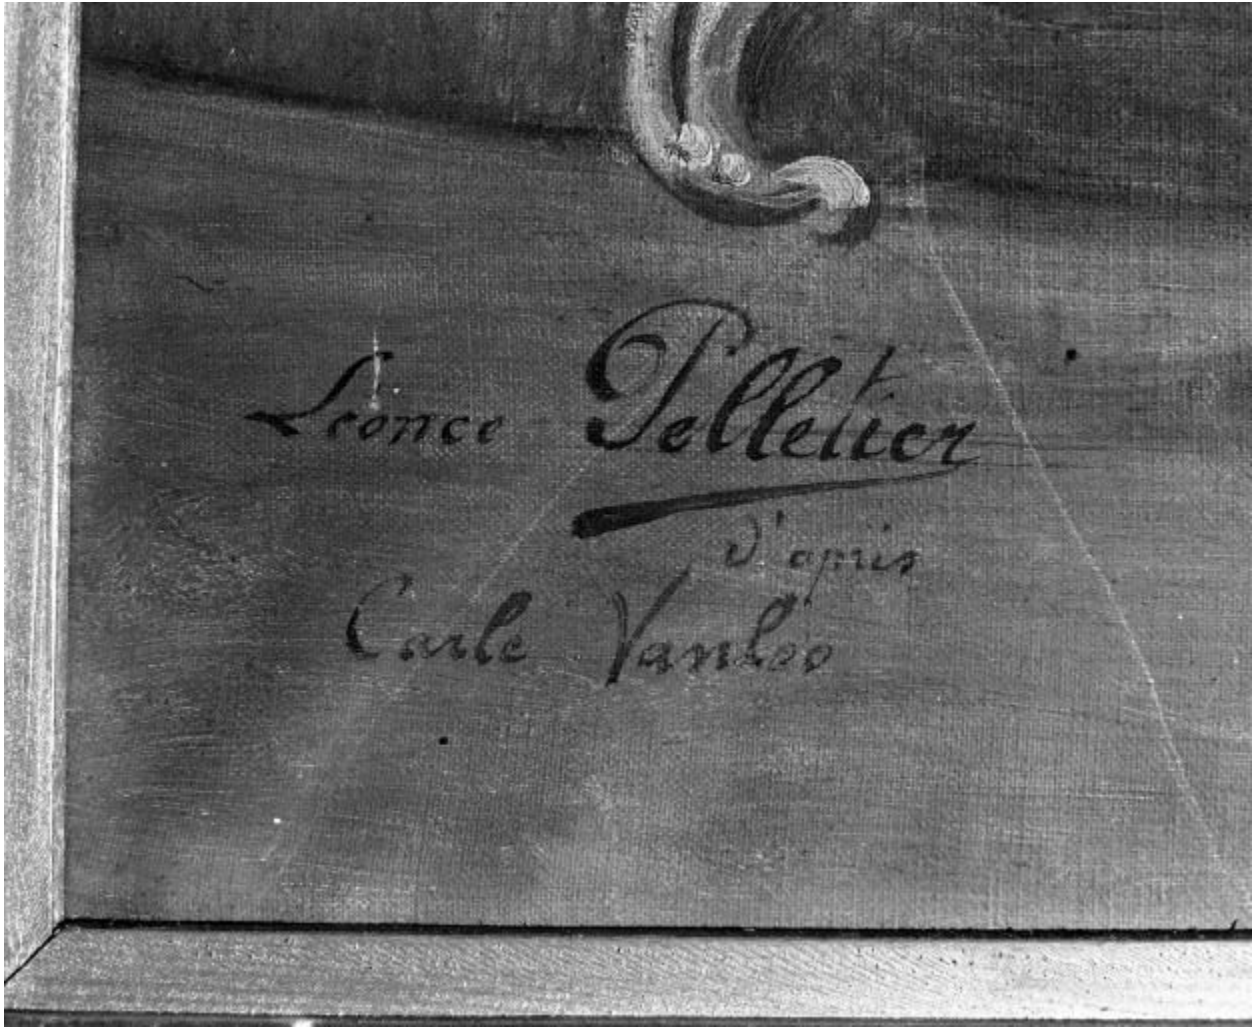 Léonce Pelletier
d'après
Carle Vanloo